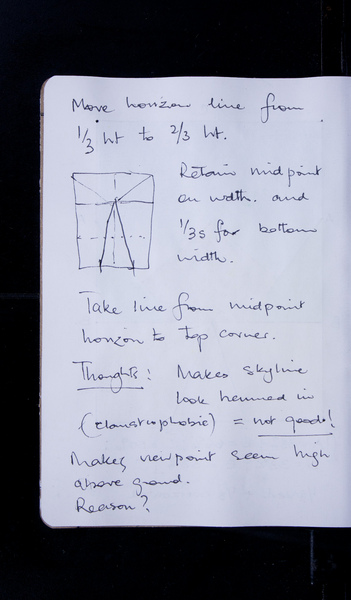 Move horizon line from
1/3 ht to 2/3 ht.
Retain midpoint
on width. and
1/3s for bottom
width.
Take line from midpoint
horizon to top corner.
Thoughts: Makes skyline
look hemmed in
(claustrophobic) = not good!
Makes viewpoint seem high
above ground.
Reason?